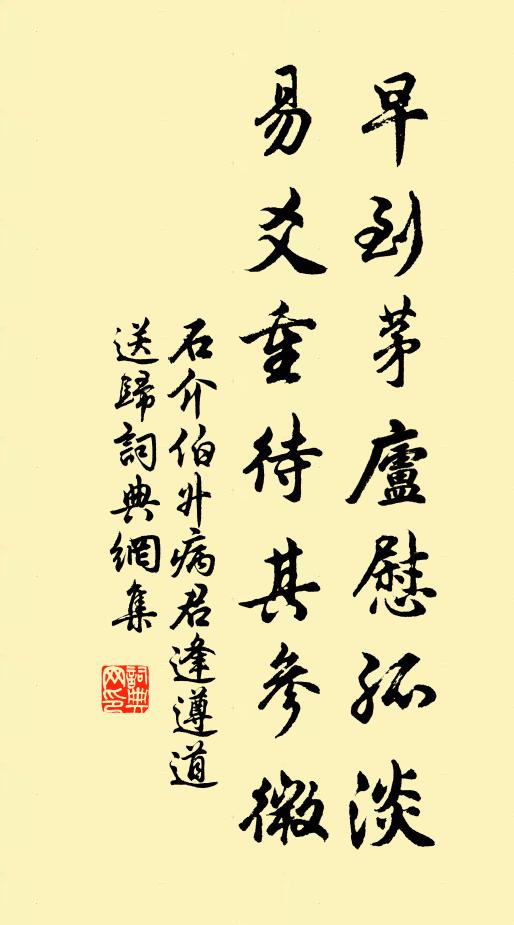 早到茅廬慰孤淡
易爻重待其參微
石介伯升病君逢遵道
送歸詞典網集
詞典
网印